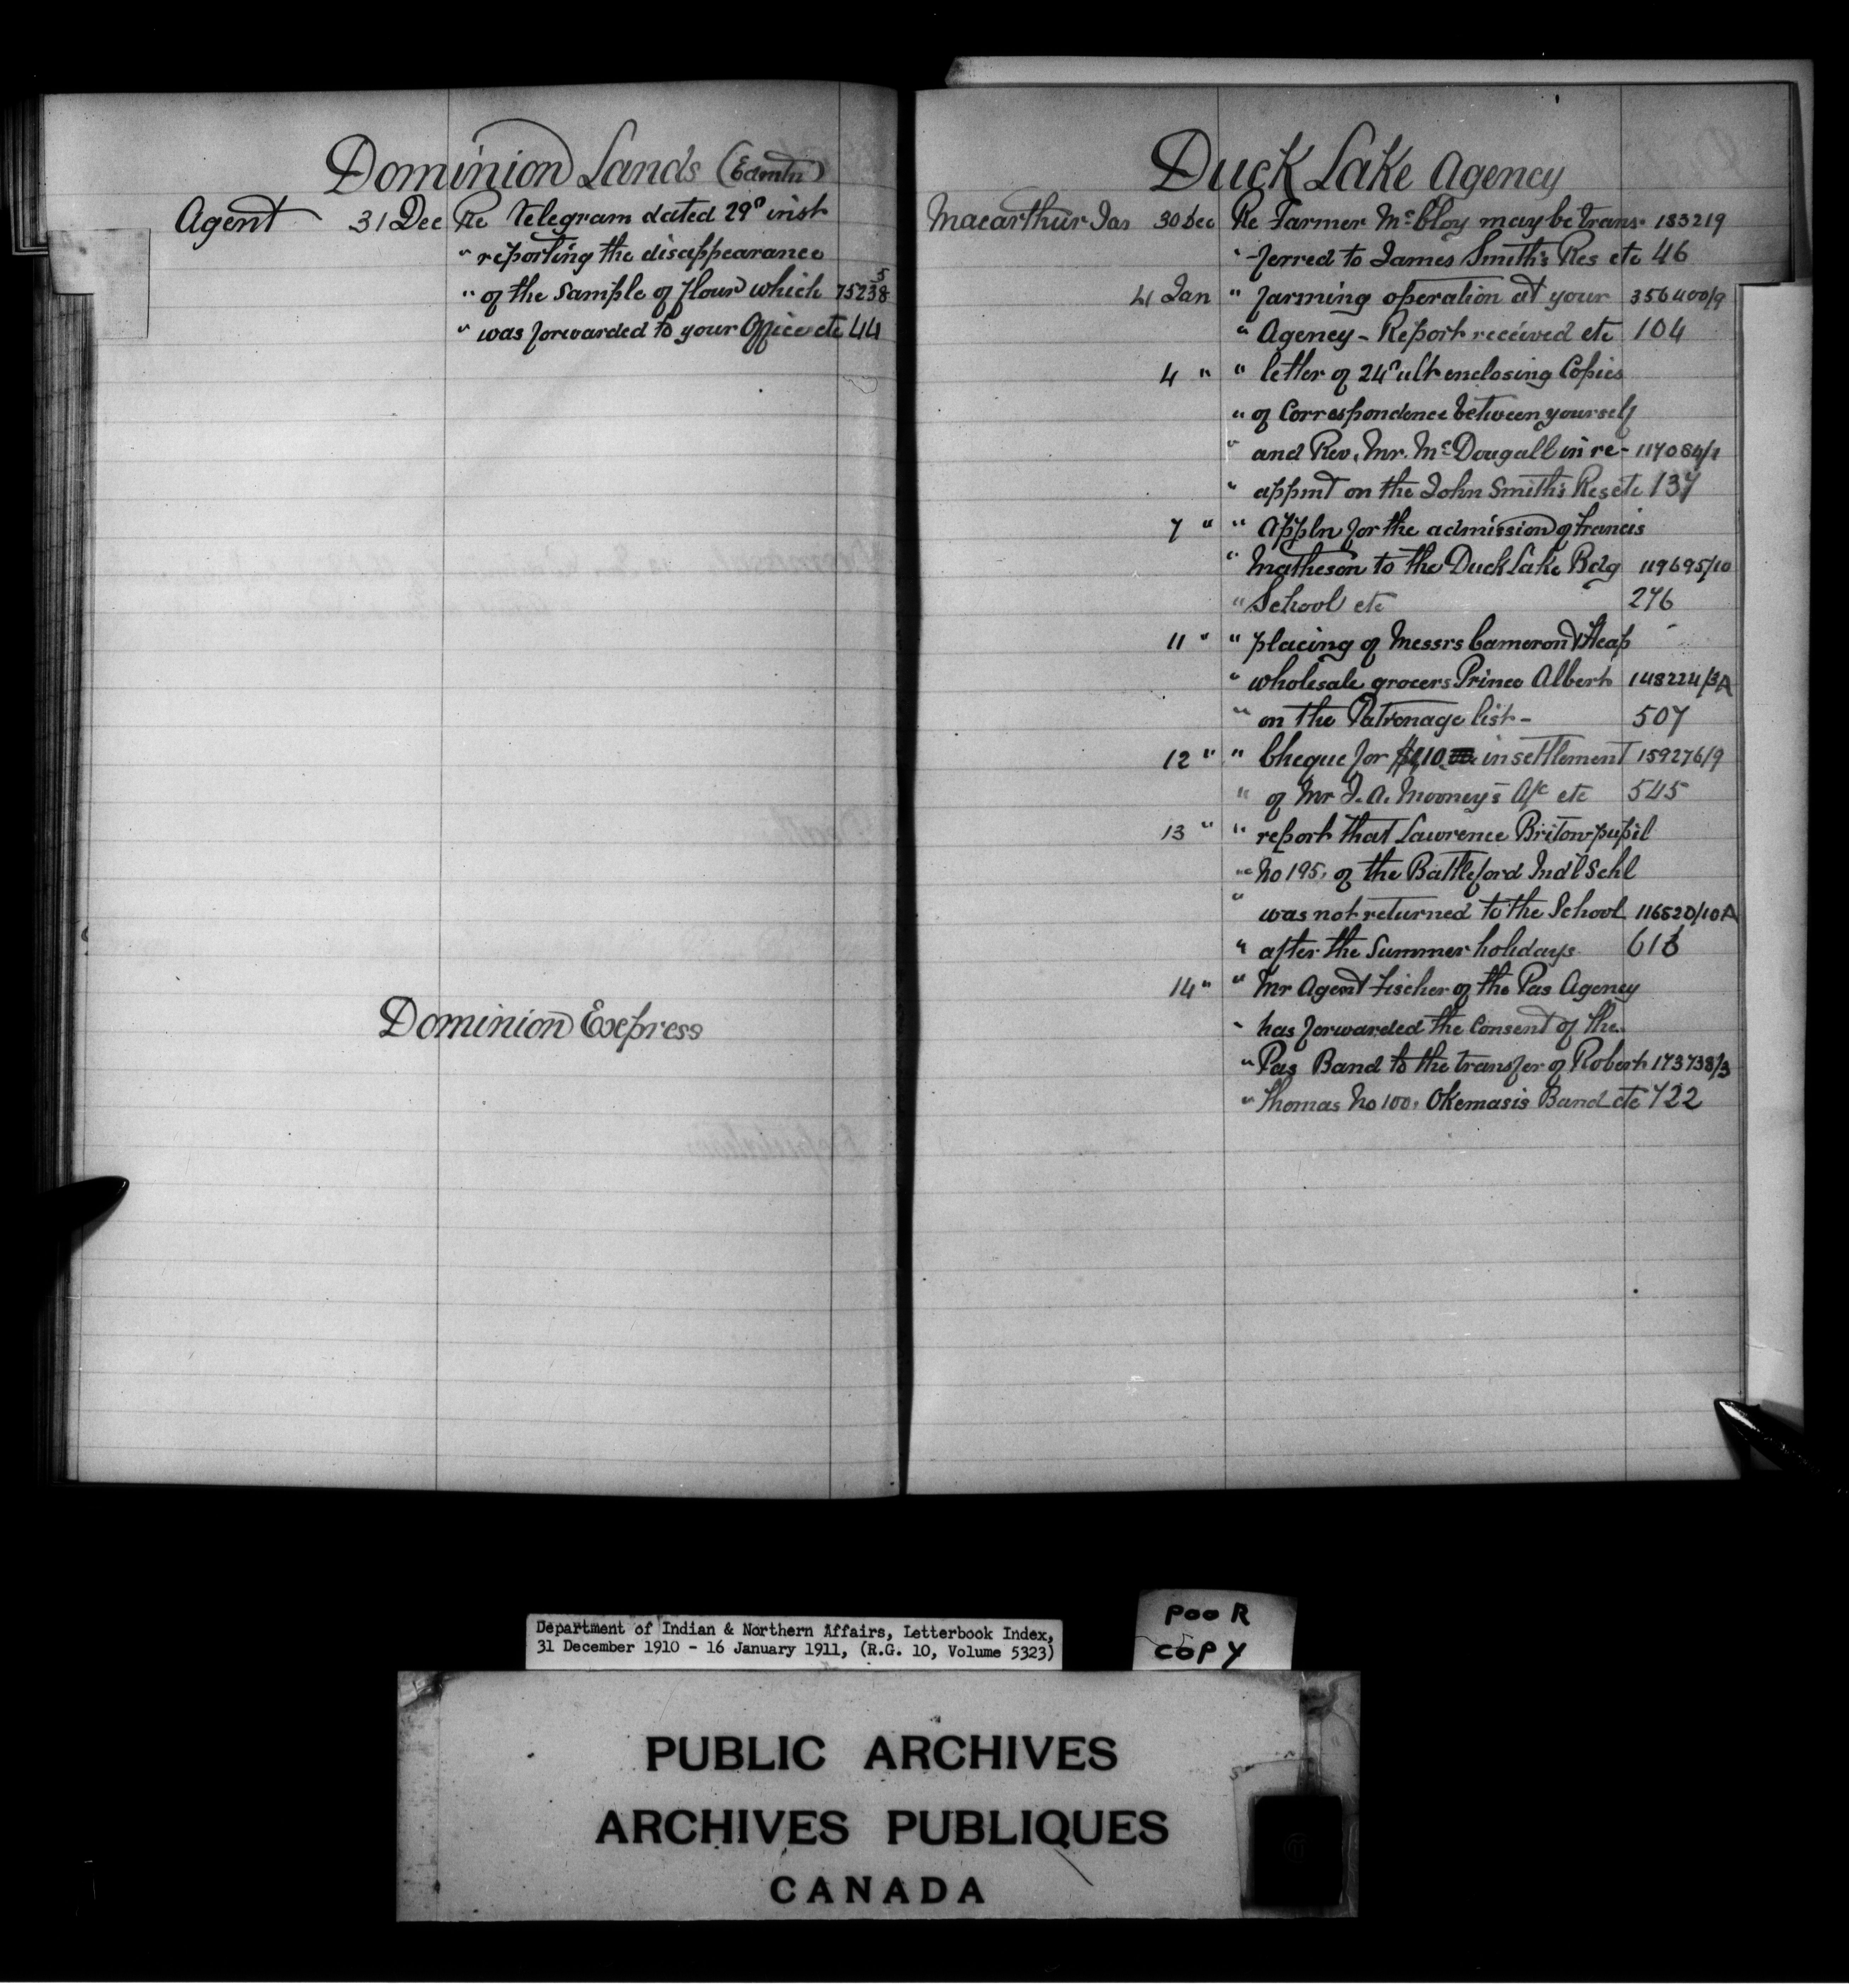 Dominion Lands (Edmtn)
Agent 31 Dec Re Telegram dated 29th inst
" reporting the disappearance
" of the Sample of flour which 75238 5
" was forwarded to your Office etc 44
Dominion Express
Duck Lake Agency
Macarthur Jas 30 Dec Re Farmer McCloy may be trans- 183219
" -ferred to James Smith's Res etc 46
4 Jan " farming operation at your 356400/9
" Agency - Report received etc 104
4 " " letter of 24th ult enclosing Copies
" of Correspondence between yourself
" and Rev. Mr. McDougall in re- 117084/1
" appmt on the John Smith's Res etc 137
7 " " Appln for the admission of Francis
" Matheson to the Duck Lake Bdg 119695/10
" School etc 276
11 " " placing of Messrs Cameron & Heap
" wholesale grocers Prince Albert 148224/3A
" on the Patronage list - 507
12 " " Cheque for in settlement 159276/9
" of Mr J. A. Mooney's A/c etc 545
13 " " report that Lawrence Briton pupil
" No 195, of the Battleford Ind'l Schl
" was not returned to the School 116520/10A
" after the Summer holidays 616
14 " " Mr Agent Fischer of the Pas Agency
" has forwarded the Consent of the
" Pas Band to the transfer of Robert 173738/3
" Thomas No 100, Okemasis Band etc 722
Department of Indian & Northern Affairs, Letterbook Index,
31 December 1910 - 16 January 1911, (R.G. 10, Volume 5323)
POOR
COPY
PUBLIC ARCHIVES
ARCHIVES PUBLIQUES
CANADA